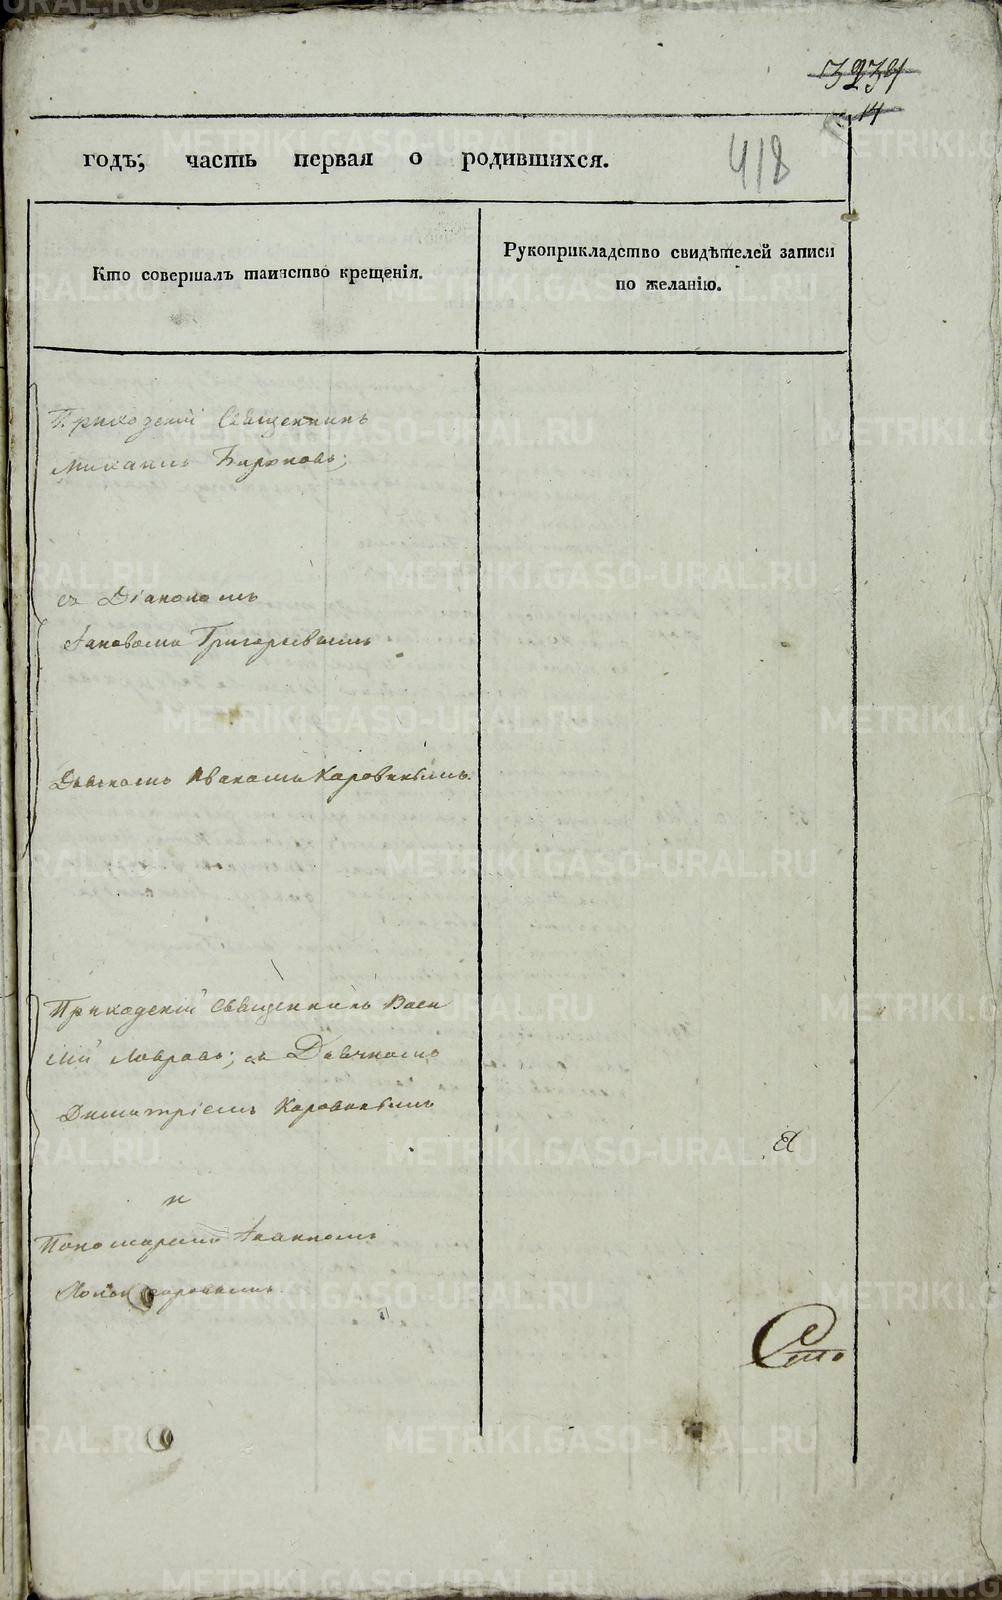 3239
14
418
годъ, часть первая о родившихся.
Кто совершалъ таинство крещенія.
Рукоприкладство свидѣтелей записи
по желанію.
Приходскій Священникъ
Михаилъ Бирюковъ;
съ Діакономъ
Іаковомъ Григорьевымъ
Дьячкомъ Иваномъ Коровинымъ.
Приходскій Священникъ Васи
лій Лавровъ; съ Дьячкомъ
Димитріемъ Коровинымъ
и
Пономаремъ Іоанномъ
Сто
METRIKI.GASO-URAL.RU